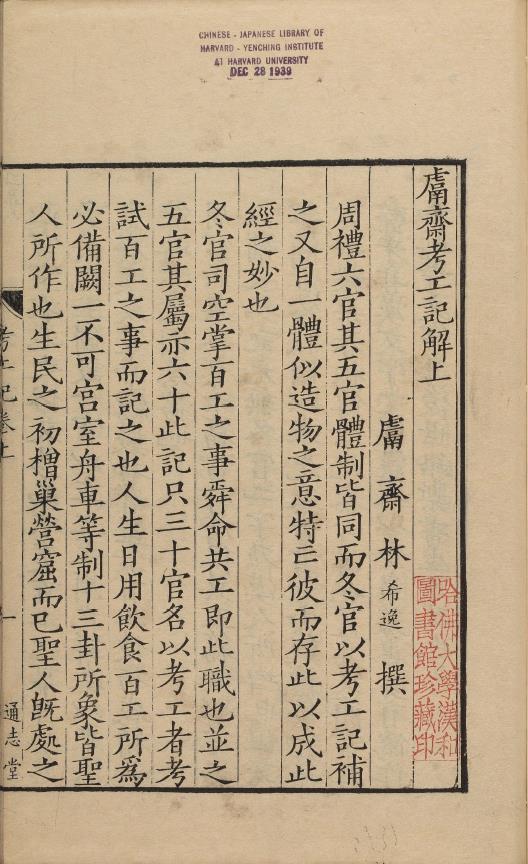 CHINESE - JAPANESE LIBRARY OF
HARVARD - YENCHING INSTITUTE
AT HARVARD UNIVERSITY
DEC 28 1939
鬳齋考工記解上
鬳齋林希逸撰
周禮六官其五官體制皆同而冬官以考工記補
之又自一體似造物之意特亡彼而存此以成此
經之妙也
冬官司空掌百工之事舜命共工即此職也並之
五官其屬亦六十此記只三十官名以考工者考
試百工之事而記之也人生日用飲食百工所爲
必備闕一不可宮室舟車等制十三卦所象皆聖
人所作也生民之初橧巢營窟而已聖人旣處之
考工記卷上
一
通志堂
哈佛大學漢和
圖書館珍藏印